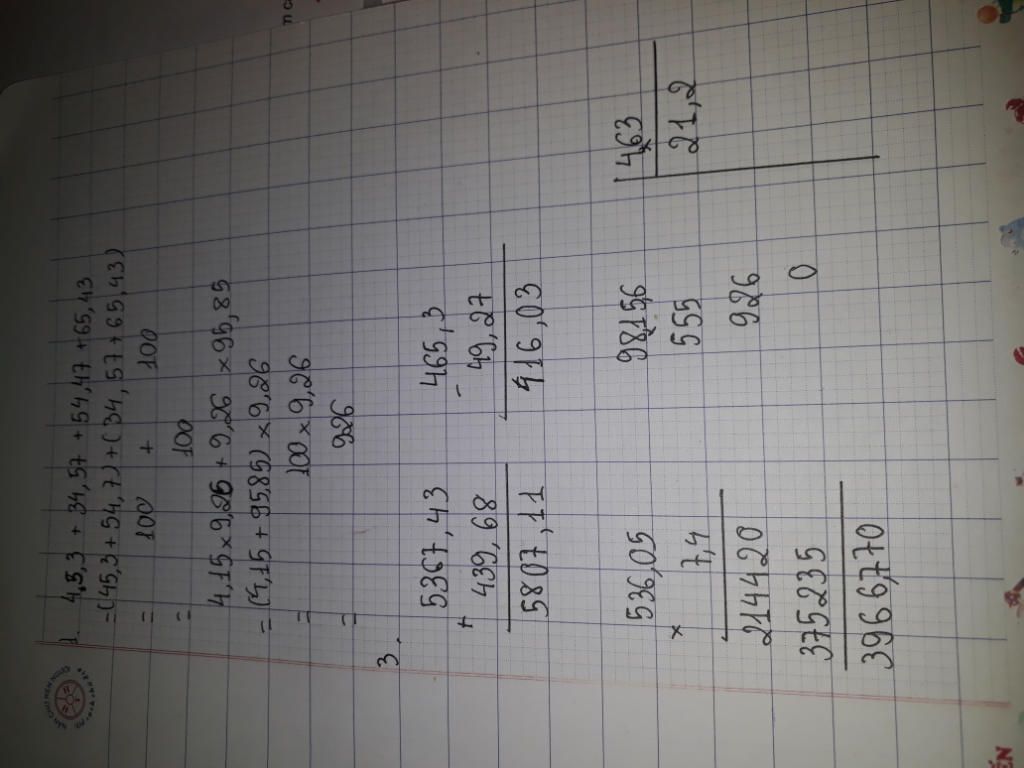 1. 4,5,3 + 34,57 + 54,47 + 65,43
= (45,3 + 54,7) + (34,57 + 65,43)
= 100 + 100
= 100
4,15 x 9,26 + 9,26 x 95,85
= (4,15 + 95,85) x 9,26
= 100 x 9,26
= 926
3.
5367,43 465,3
+ 439,68 - 49,27
5807,11 416,03
536,05 9815,6 463
x 7,4 555 21,2
214420 926
375235 0
3966,770